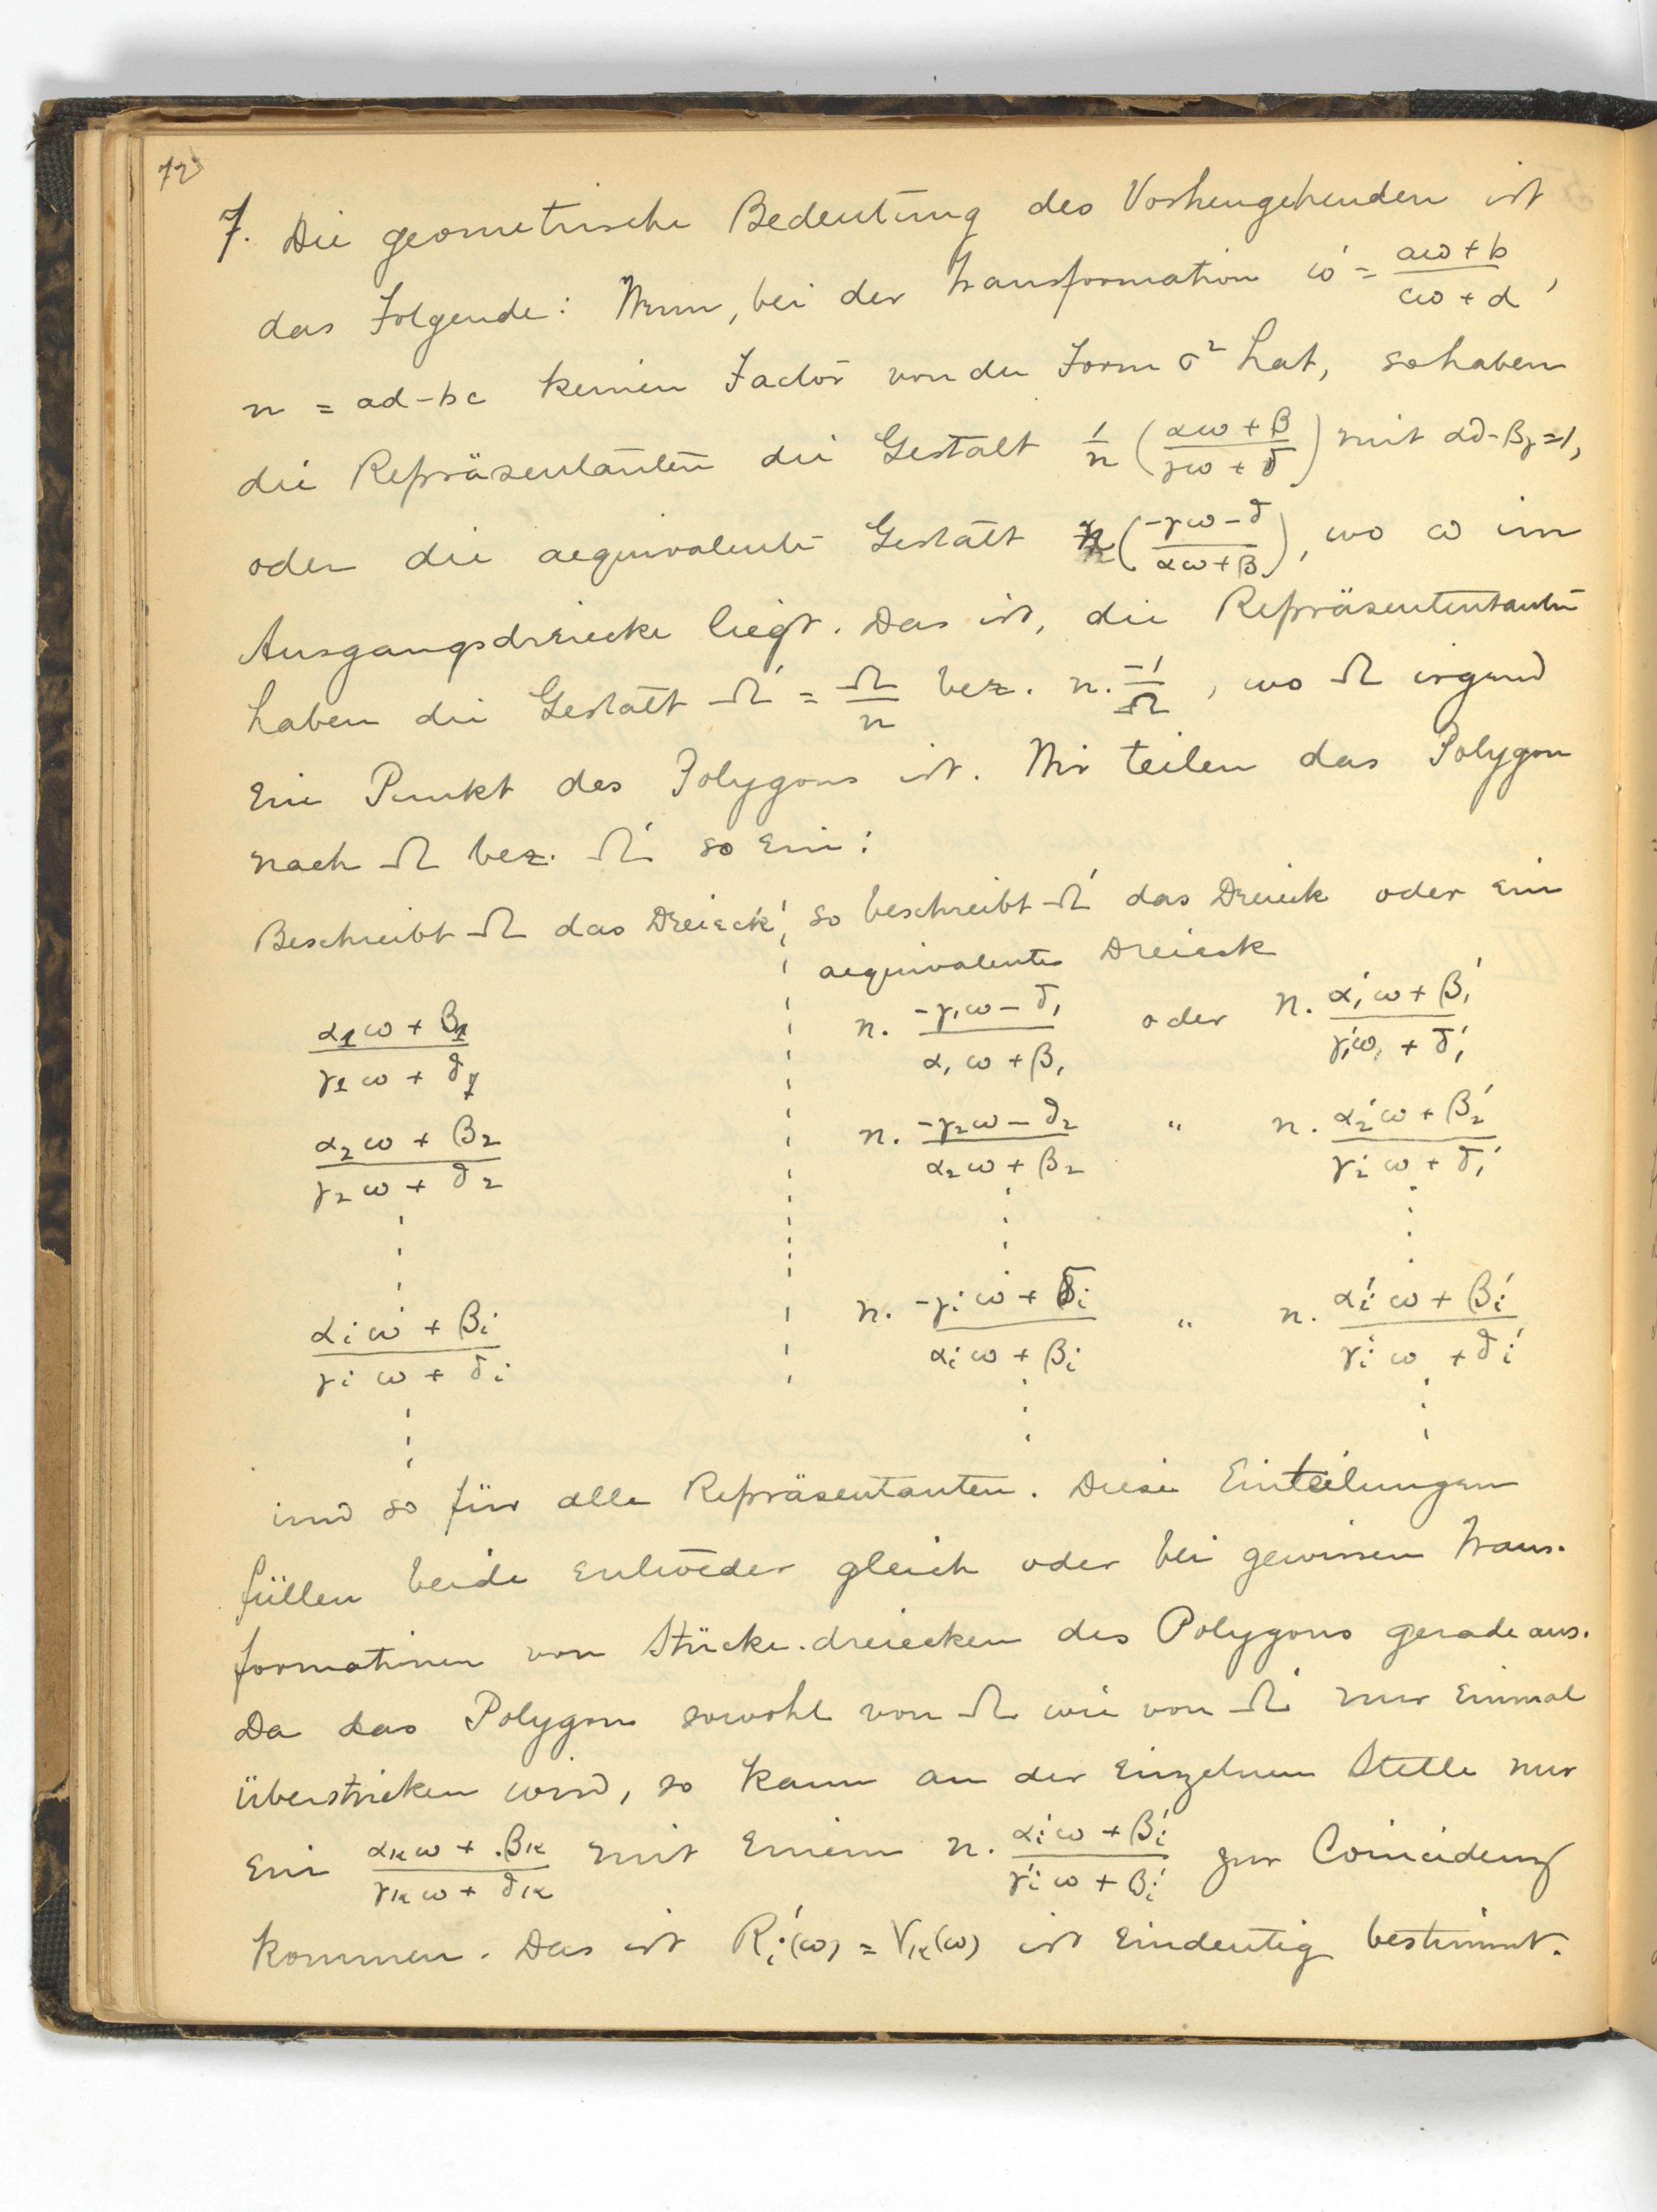 72
7. Die geometrische Bedeutung des Vorhergehenden ist
das Folgende: Wenn, bei der Transformation ω' = (aω + b)/(cω + d),
n = ad - bc keinen Factor von der Form σ² hat, so haben
die Repräsentanten die Gestalt 1/n ((αω + β)/(γω + δ)) mit αδ - βγ = 1,
oder die aequivalente Gestalt n((-γω - δ)/(αω + β)), wo ω im
Ausgangsdreiecke liegt. Das ist, die Repräsententanten
haben die Gestalt Ω' = Ω/n bez. n. -1/Ω, wo Ω irgend
ein Punkt des Polygons ist. Wir teilen das Polygon
nach Ω bez. Ω' so ein:
Beschreibt Ω das Dreieck, so beschreibt Ω' das Dreieck oder ein
aequivalentes Dreieck
(α₁ω + β₁)/(γ₁ω + δ₁) n. (-γ₁ω - δ₁)/(α₁ω + β₁) oder n. (α₁'ω + β₁')/(γ₁'ω + δ₁')
(α₂ω + β₂)/(γ₂ω + δ₂) n. (-γ₂ω - δ₂)/(α₂ω + β₂) " n. (α₂'ω + β₂')/(γ₂'ω + δ₁')
(αᵢω + βᵢ)/(γᵢω + δᵢ) n. (-γᵢω + δᵢ)/(αᵢω + βᵢ) " n. (αᵢ'ω + βᵢ')/(γᵢ'ω + δᵢ')
und so für alle Repräsentanten. Diese Einteilungen
füllen beide entweder gleich oder bei gewissen Trans-
formationen von Stücke. dreiecken des Polygons gerade aus.
Da das Polygon sowohl von Ω wie von Ω' nur einmal
überstrichen wird, so kann an der einzelnen Stelle nur
ein (αₖω + βₖ)/(γₖω + δₖ) mit einem n. (αᵢ'ω + βᵢ')/(γᵢ'ω + βᵢ') zur Coincidenz
kommen. Das ist Rᵢ'(ω) = Vₖ(ω) ist eindeutig bestimmt.